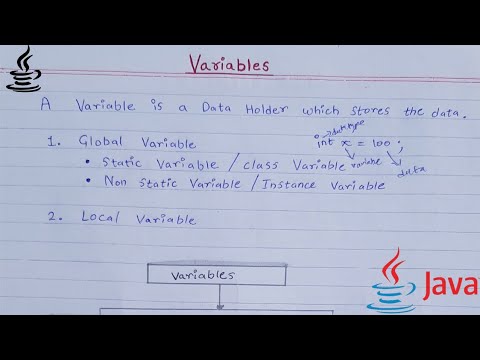 Variables
A Variable is a Data Holder which stores the data.
1. Global Variable
int x = 100 ;
datatype
• Static Variable / class Variable
variable
data
• Non Static Variable / Instance Variable
2. Local Variable
Variables
Java